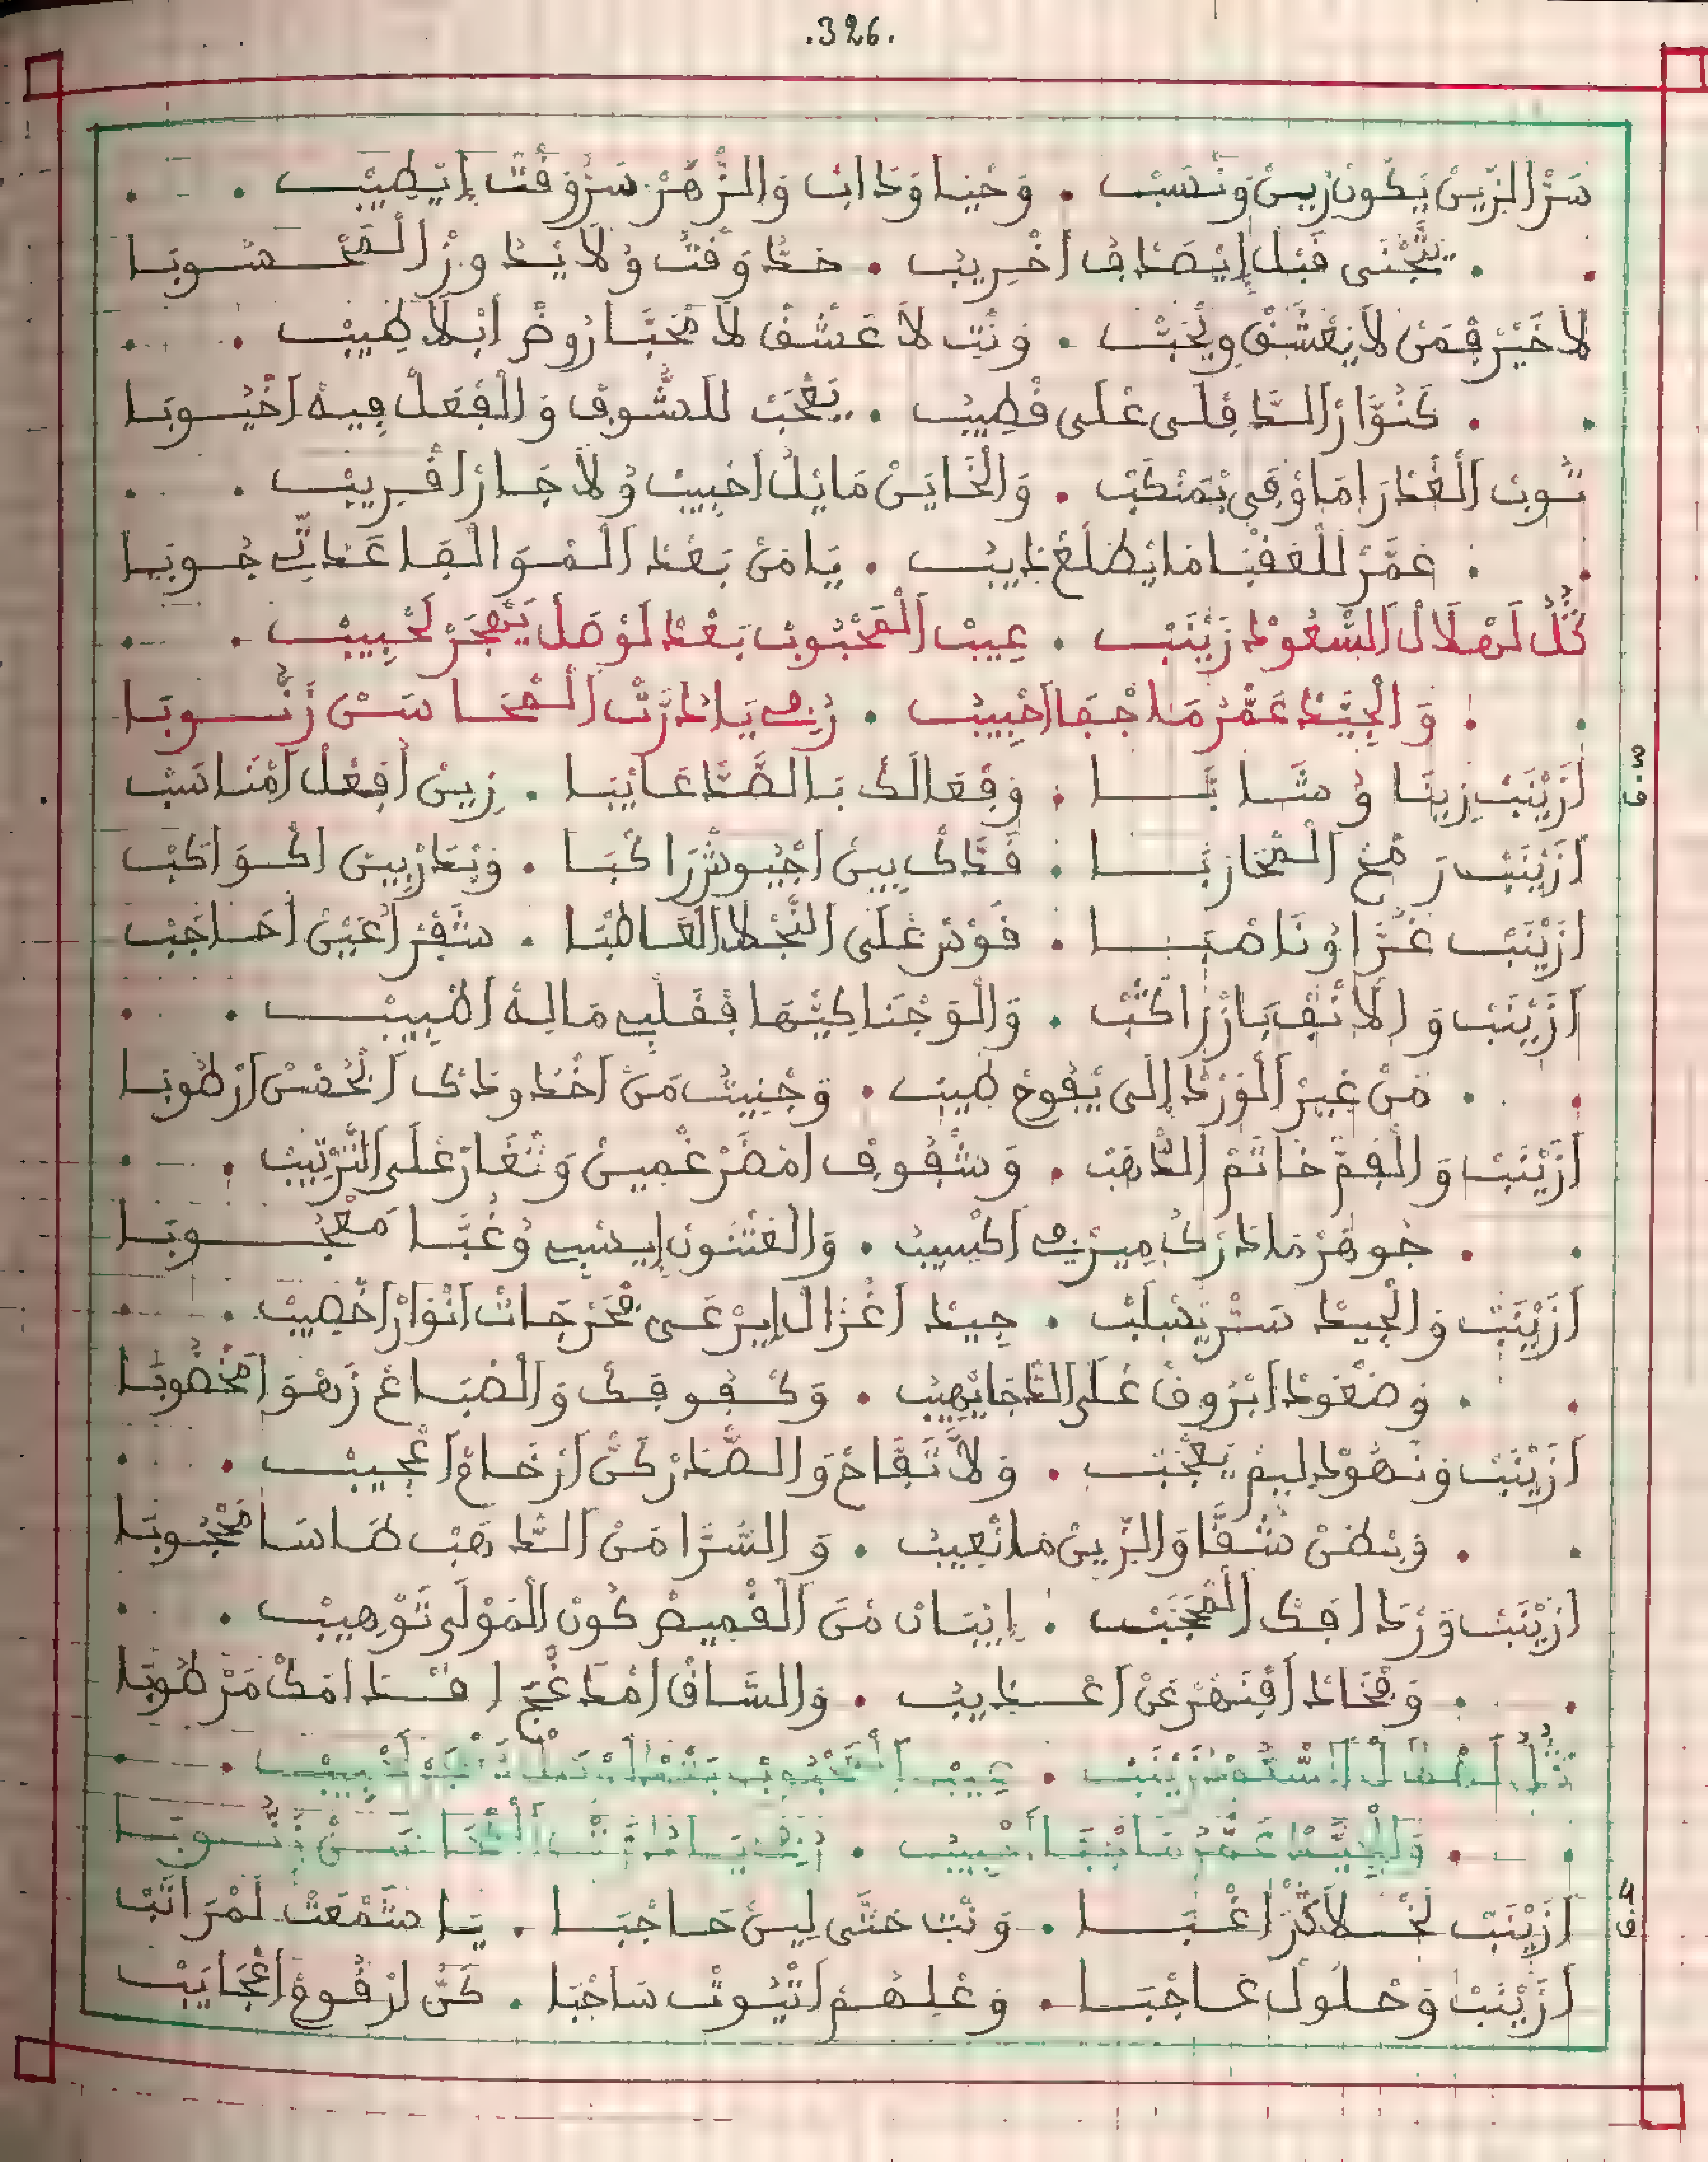 .326.
سَرّ الزّينْ يَكون زينْ وَنْسَبْ . وَحْيا وَدَابْ وَالزّهَرْ سَرّ وَقْتْ إيْطِيبْ .
. يَتّجْنى قبْل إيْصَادَف أخْرِيبْ . خدّ وَقْتْ وُلَا يْدُورْ المَحْسُوبَا
لَا خَيْر فمَنْ لَا يعْشَقْ ويْحَبّْ . وَنْتِ لَا عَشْقْ لَا مْحَبَّا رُوضْ ابْلَا طِيبْ .
. كَنُوَّارْ الدفلى عْلى قْضِيبْ . يَعْجَبْ للشّوفْ وَالْفَعَلْ فِيهْ اخْيُوبَا
ثوبْ الْغْدَرَا مَا وْفى بْمَنْكَبْ . وَالْخَايَنْ مَايْلُ احْبِيبْ وُلَا جَارْ اقْرِيبْ .
. عَمَّرْ للعَقْبَا مَا يْطَلَعْ ذِيبْ . يَا مَنْ بَعْد الْمْوَالْفَا عَدَتِّي جُوبَا
قُلُّ لَهْلَالْ السّعُودْ زَيْنَبْ . عِيبْ الْمَحْبُوبْ بَعْدْ لَوْصَلْ يَهْجَرْ لَحْبِيبْ .
. وَالْجِيَّدْ عَمَّرْ مَا جْفَا احْبِيبْ . زُرْنِي يَا دُرَّتْ الْمْحَاسَنْ زَنُّوبَا
3 ف
أزَيْنَبْ زِينَا وْشَابَّا . وَفْعَالَكْ بَالصَّدَّ عَايْبَا . زِينْ أفِعْلْ امْنَاسَبْ
أزَيْنَبْ رَمْحْ الْمْحَارْبَا . قَدّكْ بِينْ اجْيُوشْ رَاكْبَا . وَبْدَرْ بِينْ اكْوَاكَبْ
أزَيْنَبْ غُرَّا وْنَاصْبَا . قَوْسْ عْلَى النَّجْلَا الْعَاطْبَا . شَفْرْ أعَيْنْ احَاجَبْ
أزَيْنَبْ وَالَانْفْ بَازْ رَاكَبْ . وَالْوَجْنَا كِيّتْهَا فْقَلْبِي مَالِهْ اطْبِيبْ .
. مَنْ غِيرْ الْوَرْدْ إلى يْفُوحْ طِيبْ . وَجْنِيتْ مَنْ اخْدُودَكْ الْحُسْنْ ارْطُوبَا
أزَيْنَبْ وَالْفمّْ خَاتَمْ الدَّهَبْ . وَشْفُوفْ امْضَرْغْمِينْ وَثْغَارْ عْلَى التَّرْتِيبْ .
. جُوهَرْ مَادَرْكْ مِيرْ فِي اكْسِيبْ . وَالْغَنْثُونْ إيسْبِي وُغْبَّا مَعْجُوبَا
أزَيْنَبْ وَالْجِيدْ سَرّ يَسْلَبْ . جِيدْ اغْزَالْ إيرْعَى فْحَرْجَاتْ انْوَارْ اخْصِيبْ .
. وَضْعُودْ ابْرُوقْ عْلَى الدَّجَا يْهِيبْ . وَكْفُوفَكْ وَالْصْبَاعْ زَهْوَ امْخَضُّوبَا
أزَيْنَبْ وَنْهُودْ لِيمْ يَعْجَبْ . وَلَّا تَفَّاحْ وَالصّدَرْ كَنّ ارْخَامْ اعْجِيبْ .
. وَبْطَنْ شْقَّا وَالزّينْ مَا نْعِيبْ . وَالسّرَّا مَنْ الدّهَبْ طَاسَا مَحْجُوبَا
أزَيْنَبْ وَرْدَافَكْ الْمْحَجَّبْ . إيْبَانْ مْنَ الْقْمِيصْ كُونْ الْمَوْلى تَوْهِيبْ .
. وَفْخَادْ أفْنَهْرْ عَنْ اعْدِيبْ . وَالسَّاقْ امْدَعَّجْ اقْدَامَكْ مَرْطُوبَا
قُلُّ لَهْلَالْ السّعُودْ زَيْنَبْ . عِيبْ الْمَحْبُوبْ بَعْدْ لَوْصَلْ يَهْجَرْ لَحْبِيبْ .
. وَالْجِيَّدْ عَمَّرْ مَا جْفَا احْبِيبْ . زُرْنِي يَا دُرَّتْ الْمْحَاسَنْ زَنُّوبَا
4 ف
أزَيْنَبْ لَخْلَا كْثَرْ اعْبَا . وَنْتِ حَتَّى لِينْ حَاجْبَا . يَا شَمْعَتْ لَمْرَاتَبْ
أزَيْنَبْ وَحْلُولْ عَاجْبَا . وَعْلِهُمْ اتْيُوتْ سَاحْبَا . كَنّ ارْقُومْ اعْجَايَبْ